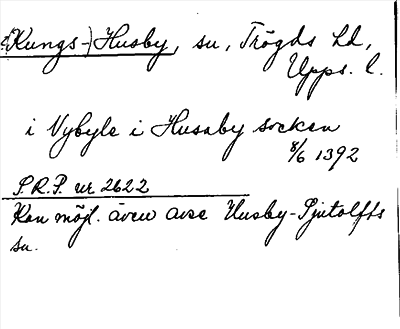 (Kungs-)Husby, sn, Trögds hd,
Upps. l.
i Vybyle i Husaby socken
8/6 1392
S.R.P. nr 2622
Kan möjl. även avse Husby-Sjutolfts
sn.